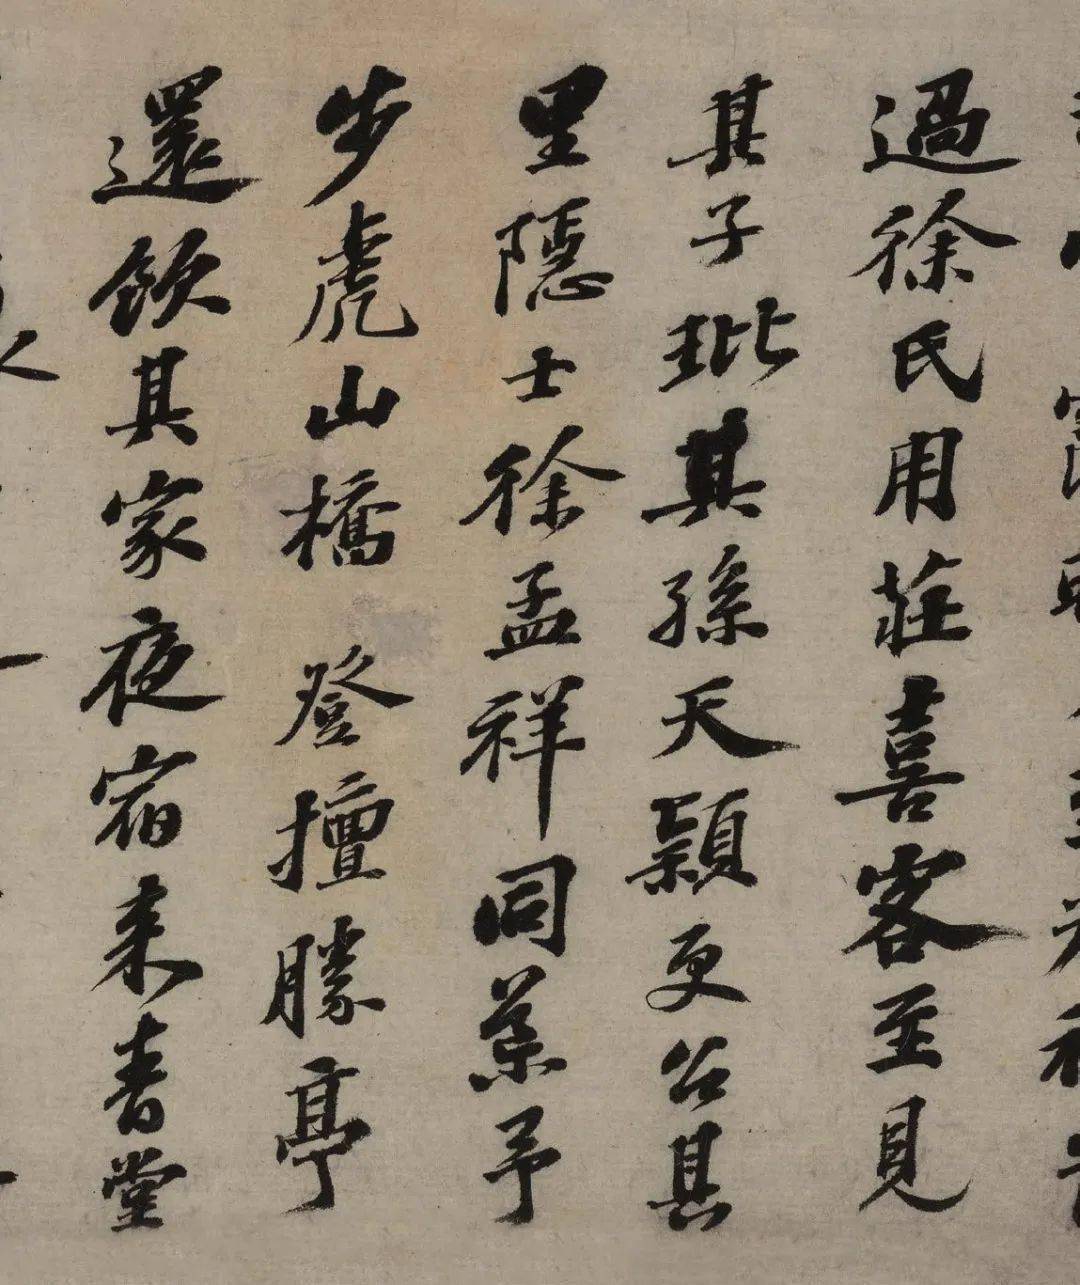 過徐氏用莊喜客至見
其子玭其孫天穎更召其
里隱士徐孟祥同予
步虎山橋 登擅勝亭
還飲其家夜宿来青堂